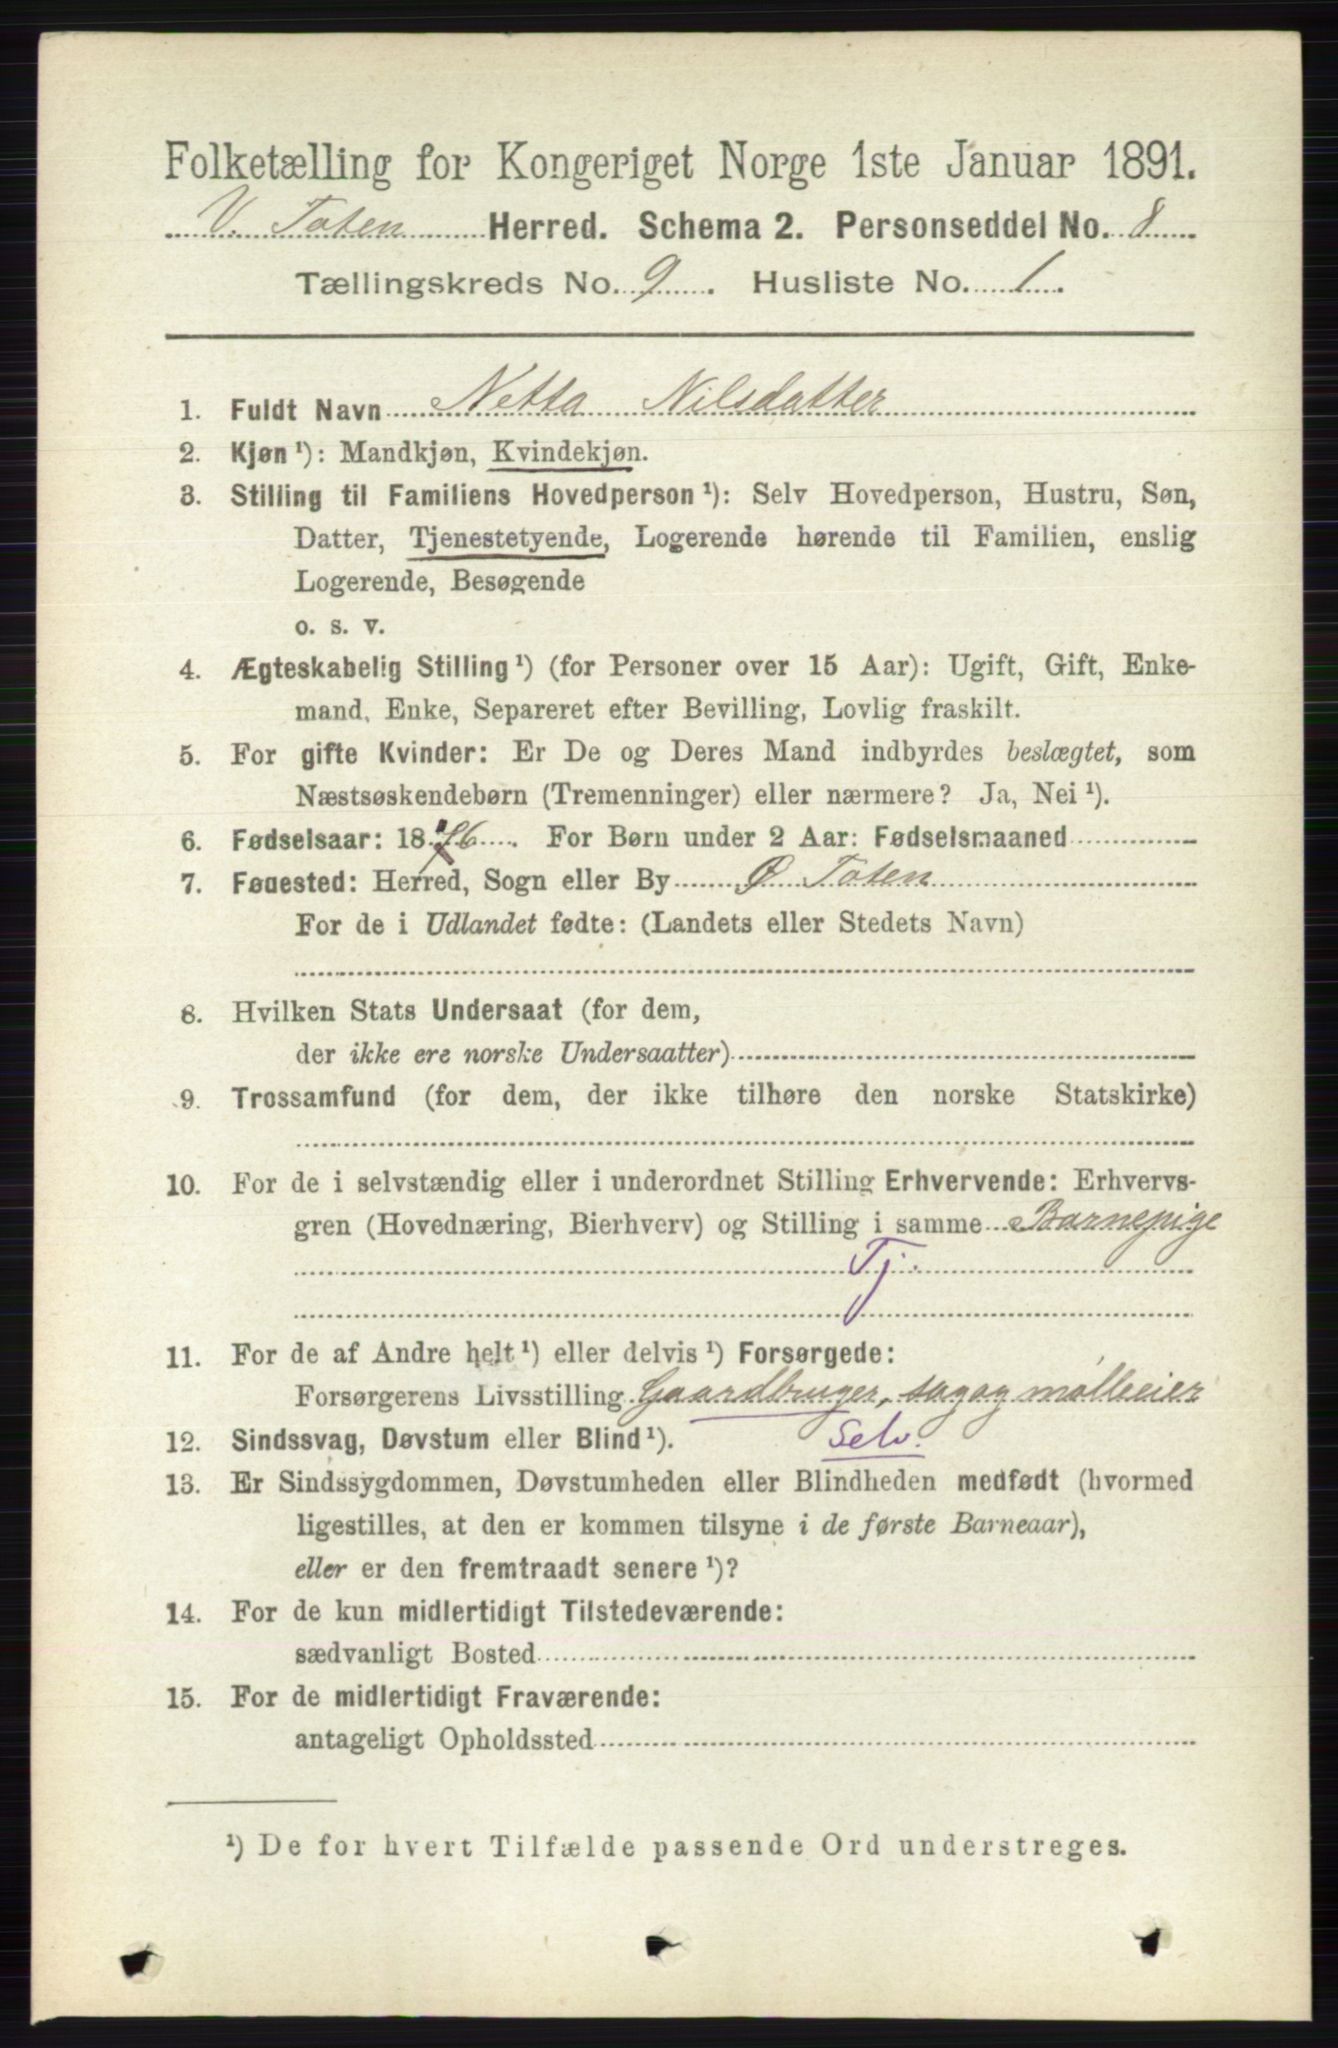 Folketælling for Kongeriget Norge 1ste Januar 1891.
V. Toten Herred. Schema 2. Personseddel No. 8
Tællingskreds No. 9. Husliste No. 1.
1. Fuldt Navn Netta Nilsdatter
2. Kjøn ¹): Mandkjøn, Kvindekjøn.
3. Stilling til Familiens Hovedperson ¹): Selv Hovedperson, Hustru, Søn,
Datter, Tjenestetyende, Logerende hørende til Familien, enslig
Logerende, Besøgende
o. s. v.
4. Ægteskabelig Stilling ¹) (for Personer over 15 Aar): Ugift, Gift, Enke-
mand, Enke, Separeret efter Bevilling, Lovlig fraskilt.
5. For gifte Kvinder: Er De og Deres Mand indbyrdes beslægtet, som
Næstsøskendebørn (Tremenninger) eller nærmere? Ja, Nei ¹).
6. Fødselsaar: 1876. For Børn under 2 Aar: Fødselsmaaned
7. Fødested: Herred, Sogn eller By Ø Toten
For de i Udlandet fødte: (Landets eller Stedets Navn)
8. Hvilken Stats Undersaat (for dem,
der ikke ere norske Undersaatter)
9. Trossamfund (for dem, der ikke tilhøre den norske Statskirke)
10. For de i selvstændig eller i underordnet Stilling Erhvervende: Erhvervs-
gren (Hovednæring, Bierhverv) og Stilling i samme Barnepige
Tj.
11. For de af Andre helt ¹) eller delvis ¹) Forsørgede:
Forsørgerens Livsstilling Gaardbruger, sag og mølleeier
12. Sindssvag, Døvstum eller Blind ¹). Selv.
13. Er Sindssygdommen, Døvstumheden eller Blindheden medfødt (hvormed
ligestilles, at den er kommen tilsyne i de første Barneaar),
eller er den fremtraadt senere ¹)?
14. For de kun midlertidigt Tilstedeværende:
sædvanligt Bosted
15. For de midlertidigt Fraværende:
antageligt Opholdssted
¹) De for hvert Tilfælde passende Ord understreges.